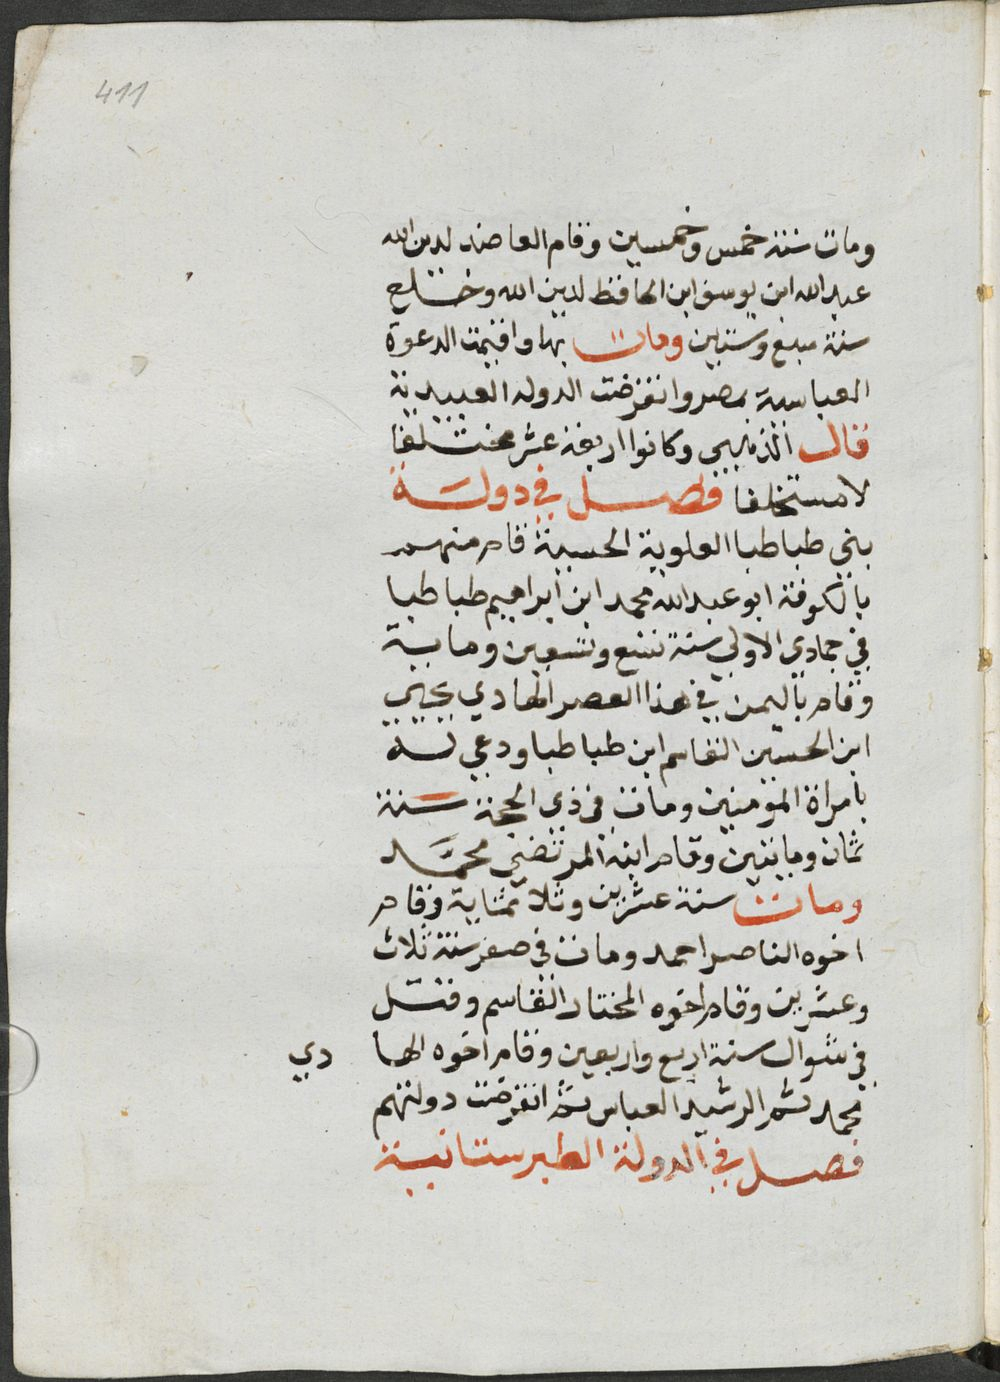 411
ومات سنة خمس وخمسين وقام العاضد لدين الله
عبد الله ابن يوسف ابن الحافظ لدين الله وخلع
سنة سبع وستين ومات بها واقيمت الدعوة
العباسية بمصر وانقرضت الدوله العبيدية
قال الذهبي وكانوا اربعة عشر متخلفا
لا مستخلفا فصل في دولة
بني طباطبا العلوية الحسنية قام منهم
بالكوفة ابو عبد الله محمد ابن ابراهيم طباطبا
في جمادي الاولي سنة تسع وتسعين وماية
وقام باليمن في هذا العصر الهادي يحيي
ابن الحسين القاسم ابن طباطبا ودعي له
بامراة المؤمنين ومات في ذي الحجة سنة
ثمان ومايتين وقام ابنه المرتضي محمد
ومات سنة عشرين وثلاثماية وقام
اخوه الناصر احمد ومات في صفر سنة ثلاث
وعشرين وقام اخوه المختار القاسم وقتل
في شوال سنة اربع واربعين وقام اخوه الها دي
محمد ثم الرشيد العباس ثم انقرضت دولتهم
فصل في الدولة الطبرستانية